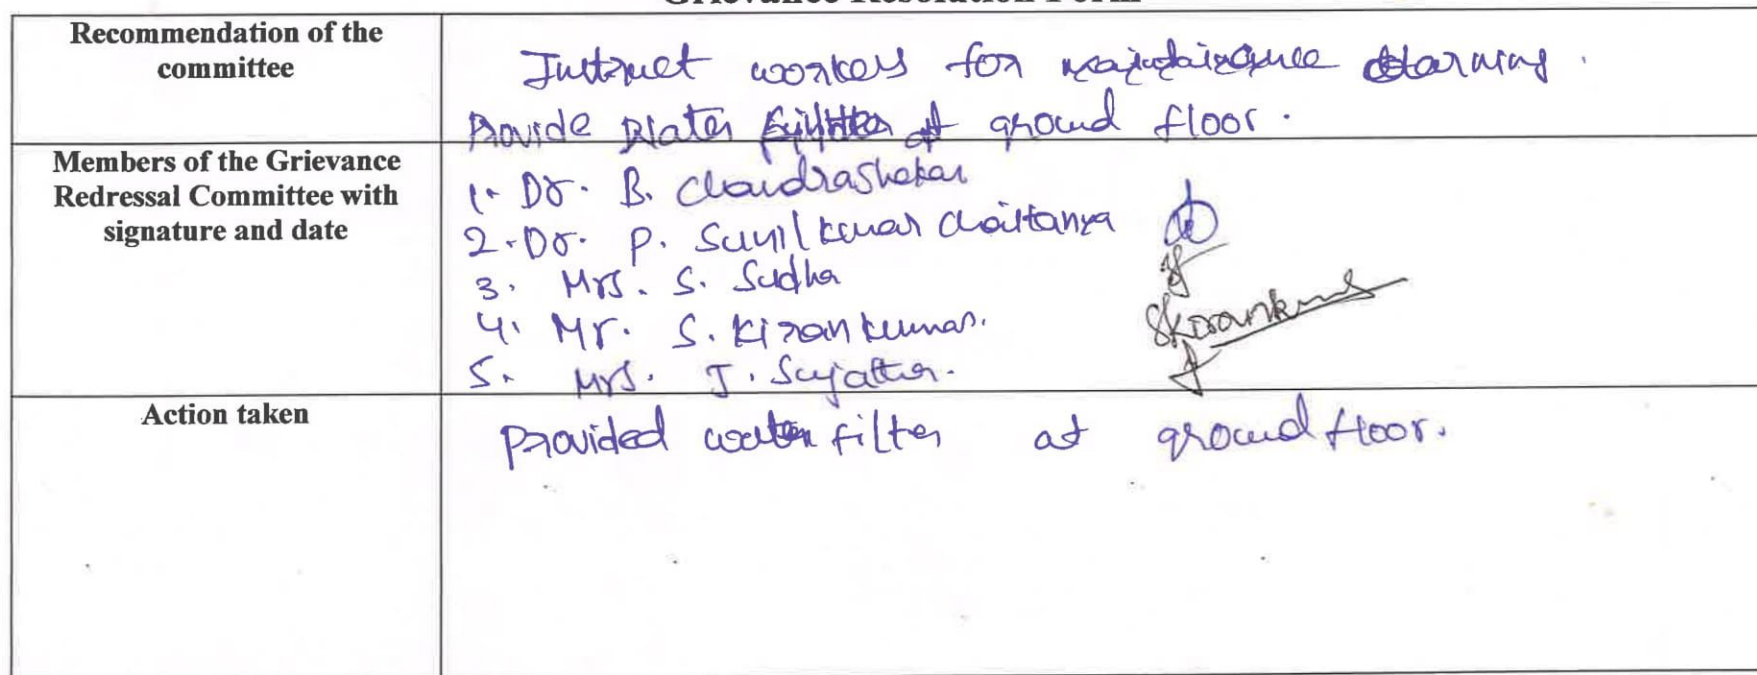 Grievance Resolution Form
Recommendation of the
committee
workers for
Provide Water at ground floor.
Members of the Grievance
Redressal Committee with
signature and date
1. Dr. B. Chandrashekar
2. Dr. P. Sunil kumar Chaitanya
3. Mrs. S. Sudha
4. Mr. S. Kiran kumar.
5. Mrs. J. Sujatha.
Skirankumar
Action taken
Provided water filter at ground floor.